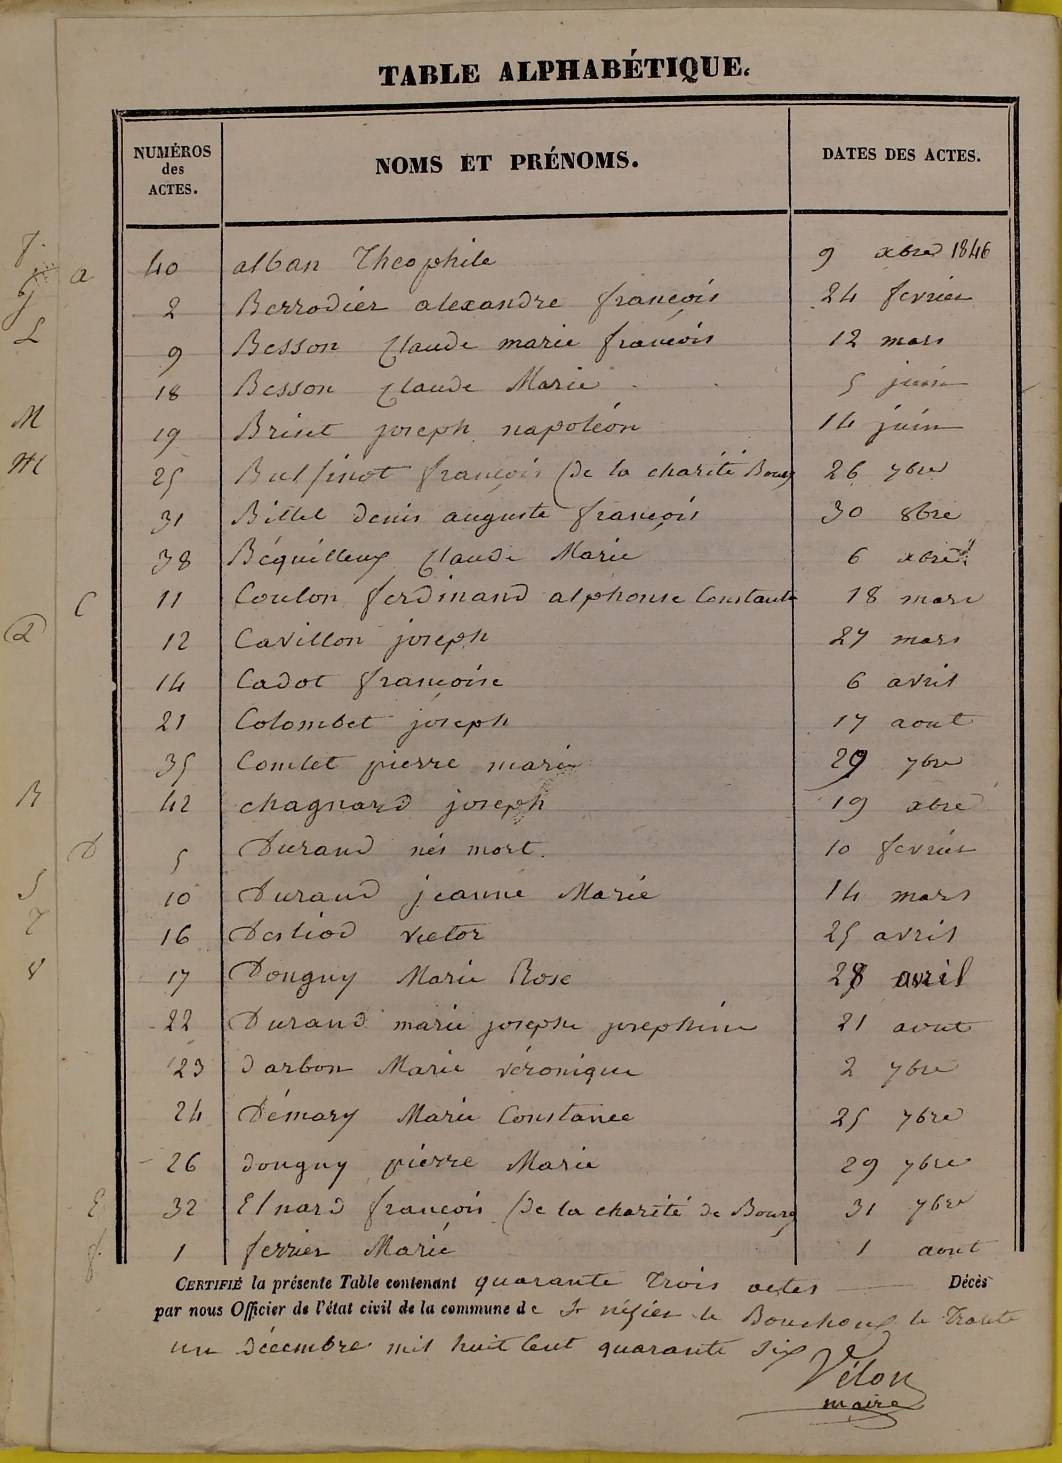 TABLE ALPHABÉTIQUE.
NUMÉROS des ACTES. NOMS ET PRÉNOMS. DATES DES ACTES.
a 40 alban Theophile 9 xbre 1846
2 Berrodier alexandre françois 24 fevrier
L 9 Besson Claude marie françois 12 mars
18 Besson Claude Marie 5 juin
M 19 Briset joseph napoléon 14 juin
M 25 françois (de la charité Bourg 26 7bre
31 Bittel denis auguste françois 30 8bre
38 Béquilleux Claude Marie 6 xbre
C 11 Coulon ferdinand alphonse Constante 18 mars
D 12 Cavillon joseph 27 mars
14 Cadot françoise 6 avril
21 Colombet joseph 17 aout
35 Comlet pierre marie 29 7bre
R 42 chagnard joseph 19 xbre
D 5 Durand nés mort. 10 fevrier
S 10 Durand jeanne Marie 14 mars
T 16 Destiod victor 25 avril
V 17 Donguy Marie Rose 28 avril
22 Durand marie josephe josephine 21 aout
23 darbon Marie véronique 2 7bre
24 Démary Marie Constance 25 7bre
26 donguy pierre Marie 29 7bre
E 32 Elnard françois (de la charité de Bourg 31 7bre
f 1 ferrier Marie 1 aout
CERTIFIÉ la présente Table contenant quarante trois actes Décès
par nous Officier de l'état civil de la commune de St nisier le Bouchoux le Trente
un décembre mil huit Cent quarante Six
Vélon
maire